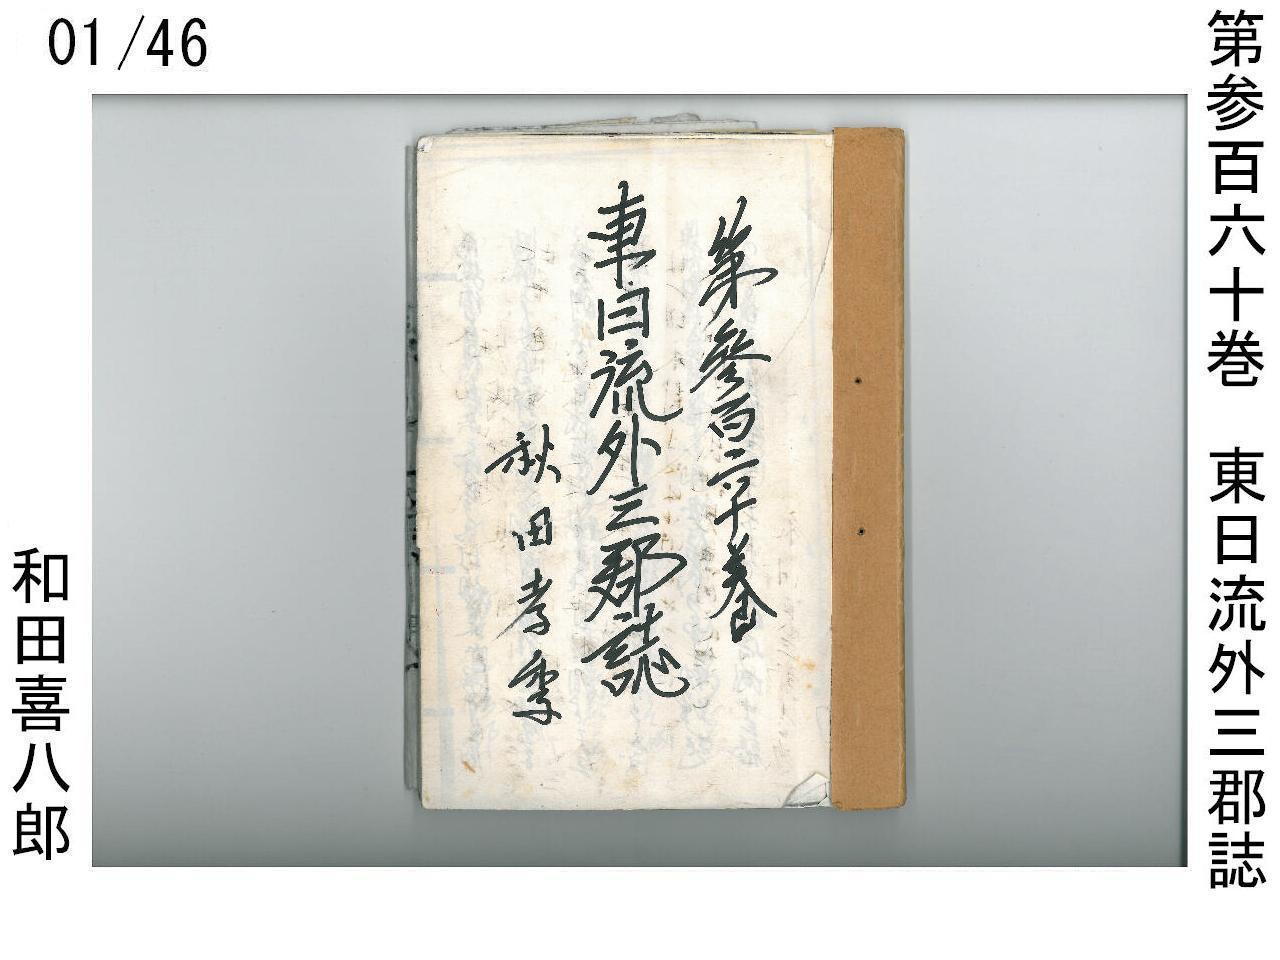 01/46
第参百六十巻 東日流外三郡誌
第參百六十巻
東日流外三郡誌
秋田孝季
和田喜八郎